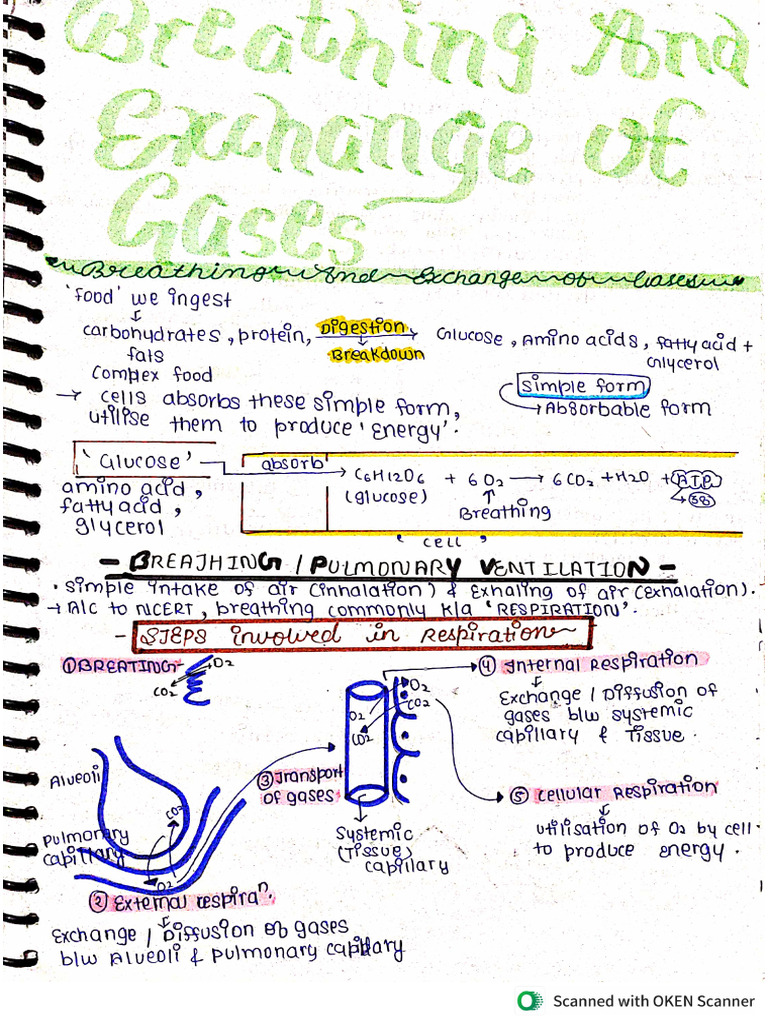 Breathing And
Exchange of
Gases
Breathing And Exchange of Gases
'food' we ingest
carbohydrates, protein, Digestion Glucose, Amino acids, fatty acid +
fats Breakdown Glycerol
complex food simple form
→ cells absorbs these simple form, → Absorbable form
utilise them to produce 'energy'.
'Glucose' absorb → C6H12O6 + 6O2 → 6CO2 + H2O + ATP
amino acid, (glucose) 38
fatty acid, Breathing
glycerol
'cell'
- BREATHING / PULMONARY VENTILATION -
• simple intake of air (innhalation) & Exhaling of air (exhalation).
→ A/C to NCERT, breathing commonly k/a 'RESPIRATION'.
- STEPS involved in Respiration
① BREATING O2
CO2
④ Internal Respiration
Exchange / Diffusion of
gases b/w systemic
capillary & Tissue.
O2
CO2
O2
CO2
Alveoli
③ Transport
of gases
⑤ Cellular Respiration
utilisation of O2 by cell
to produce energy.
CO2
Pulmonary
capillary
O2
Systemic
(Tissue)
capillary
② External respiran.
Exchange / Diffusion of gases
b/w Alveoli & pulmonary capillary
Scanned with OKEN Scanner